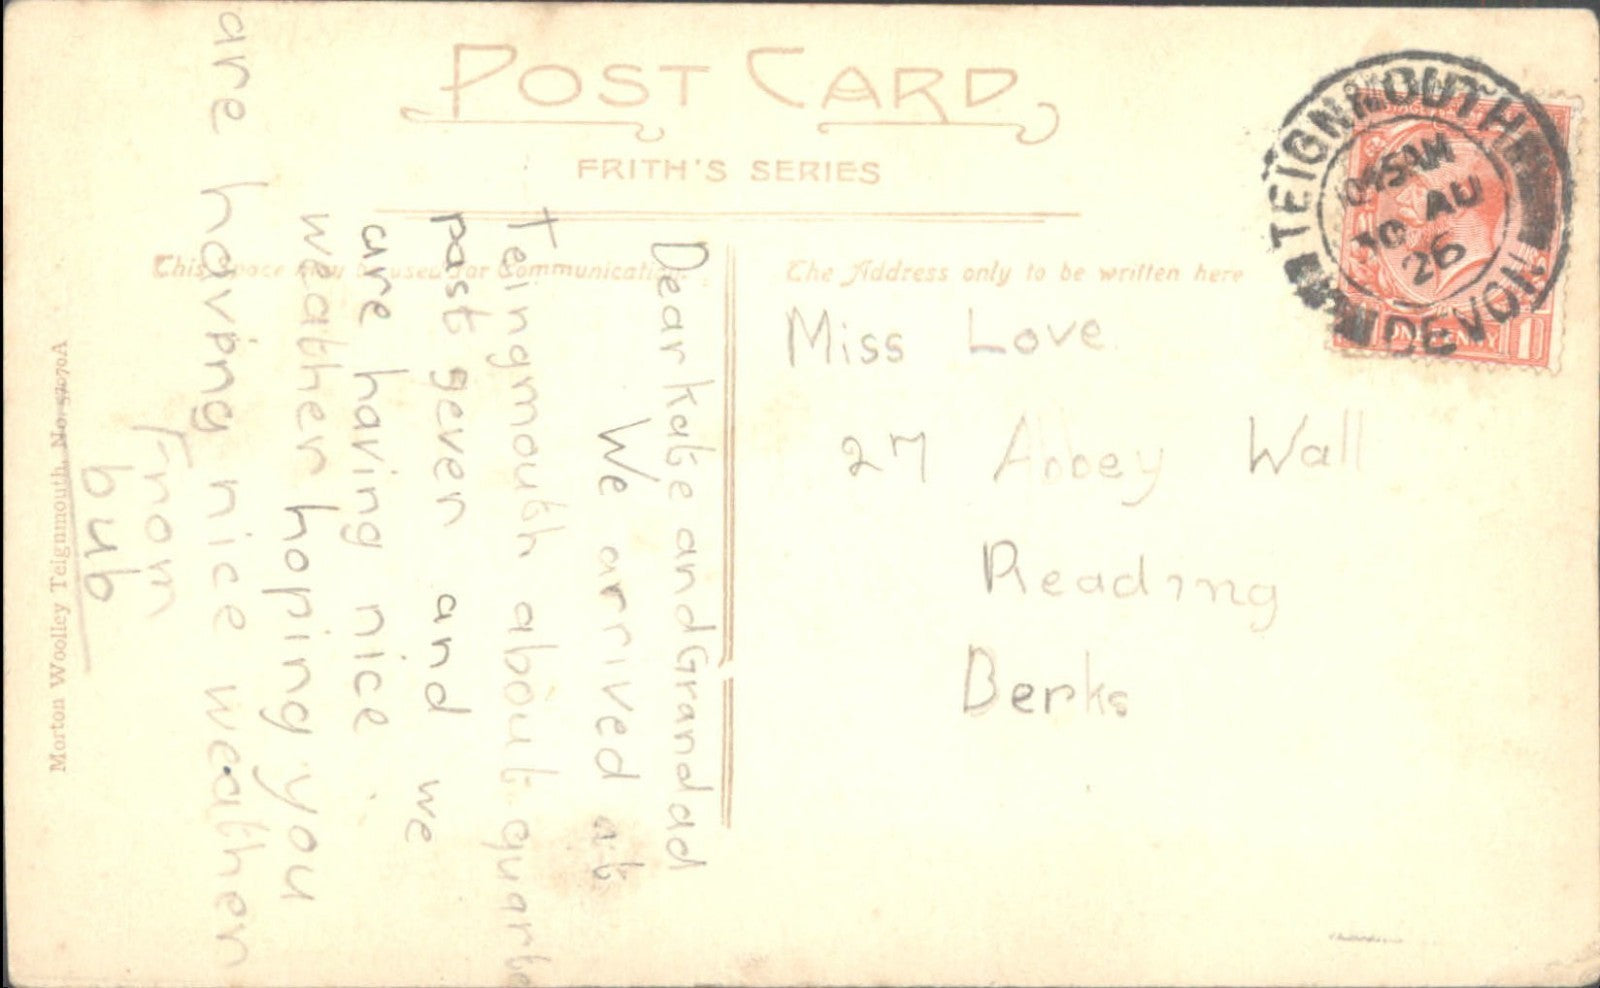 POST CARD
FRITH'S SERIES
This space may be used for Communication
The Address only to be written here
TEIGNMOUTH
AM
30 AU
26
DEVON
ONE PENNY
Miss Love
27 Abbey Wall
Reading
Berks
Dear Kate and Grandad
We arrived at
Teingmouth about quarte
past seven and we
are having nice
weather hoping you
are having nice weather
From
bub
Morton Woolley Teignmouth. No. 57070A